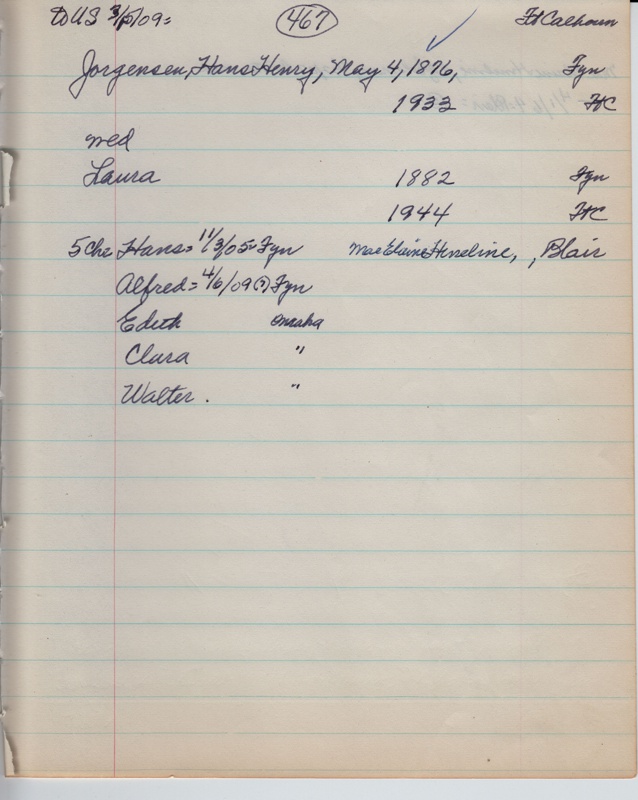 to US 3/5/09= 467 Ft Calhoun
Jorgensen, Hans Henry, May 4, 1876, Fyn
1933 Ft C
wed
Laura 1882 Fyn
1944 Ft C
5 Che Hans = 11/3/05= Fyn Mae Elaine Hineline, , Blair
Alfred = 4/6/09 (?) Fyn
Edith Omaha
Clara "
Walter . "